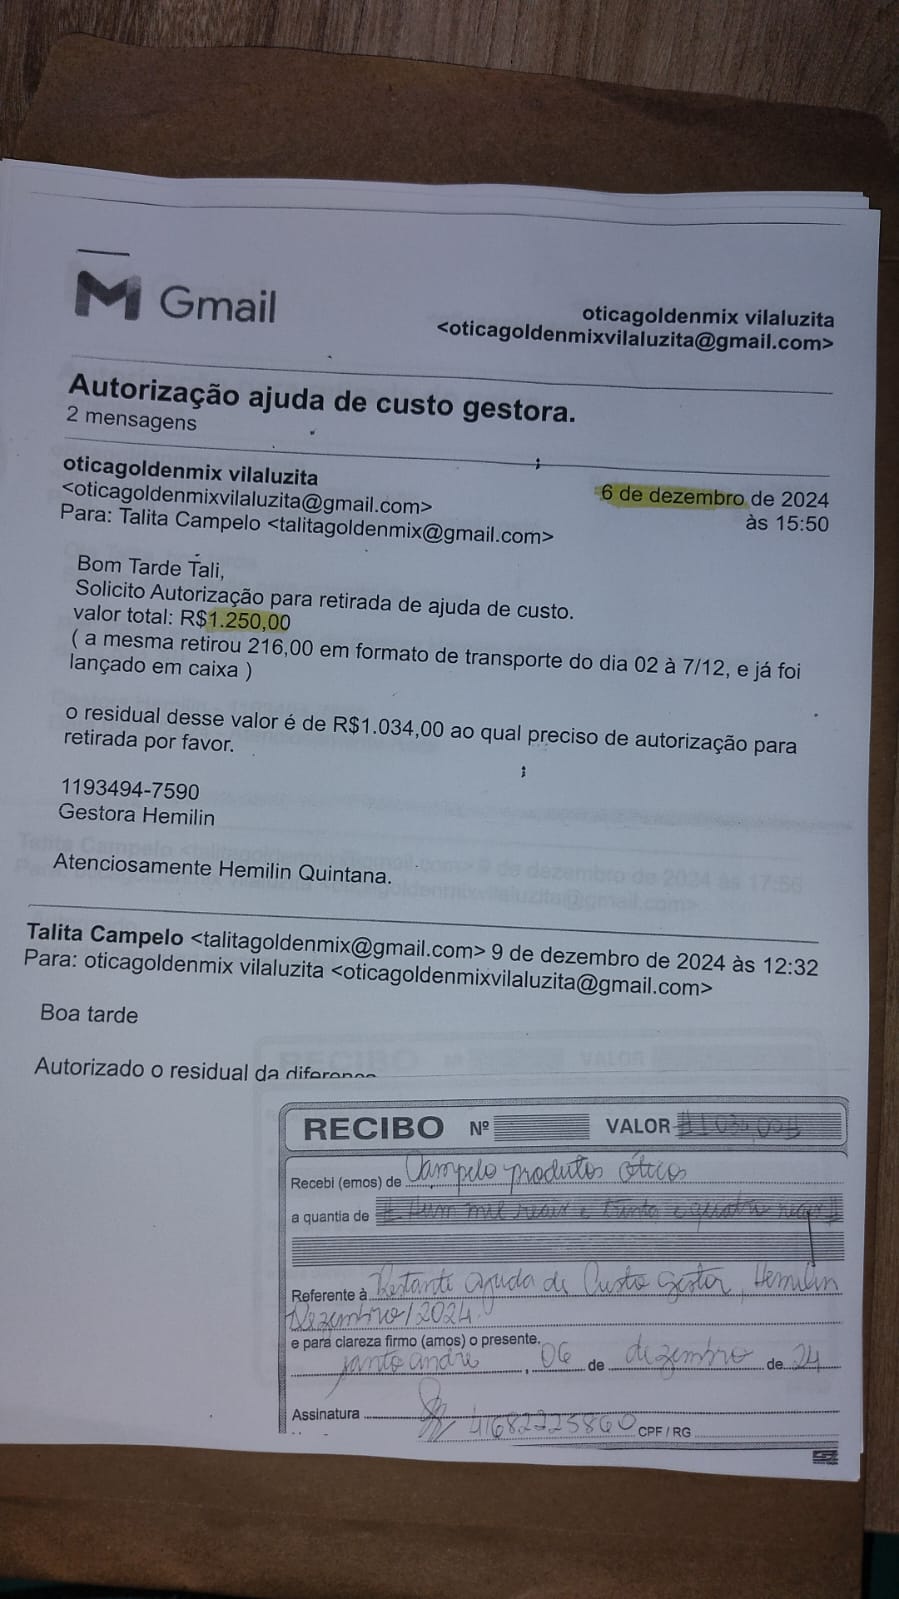 Gmail
oticagoldenmix vilaluzita
<oticagoldenmixvilaluzita@gmail.com>
Autorização ajuda de custo gestora.
2 mensagens
oticagoldenmix vilaluzita
<oticagoldenmixvilaluzita@gmail.com>
Para: Talita Campelo <talitagoldenmix@gmail.com>
6 de dezembro de 2024
às 15:50
Bom Tarde Tali,
Solicito Autorização para retirada de ajuda de custo.
valor total: R$1.250,00
( a mesma retirou 216,00 em formato de transporte do dia 02 à 7/12, e já foi
lançado em caixa )
o residual desse valor é de R$1.034,00 ao qual preciso de autorização para
retirada por favor.
1193494-7590
Gestora Hemilin
Atenciosamente Hemilin Quintana.
Talita Campelo <talitagoldenmix@gmail.com> 9 de dezembro de 2024 às 12:32
Para: oticagoldenmix vilaluzita <oticagoldenmixvilaluzita@gmail.com>
Boa tarde
Autorizado o residual da
RECIBO Nº VALOR
Recebi (emos) de Campelo produtos óticos
a quantia de # Hum mil reais e trinta e quatro reais #
Referente à Restante ajuda de Custo gestor, Hemilin
Dezembro/2024.
e para clareza firmo (amos) o presente.
santo andre, 06 de dezembro de 24
Assinatura 41682225860 CPF / RG